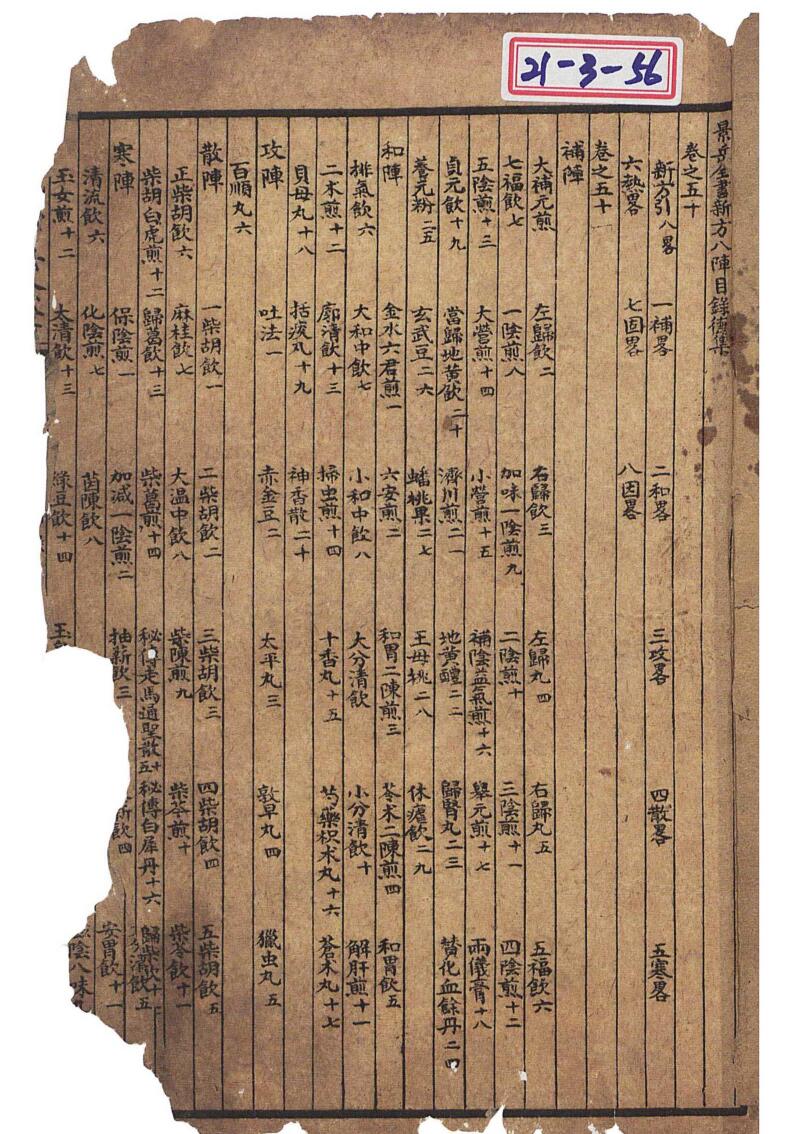 21-3-56
景岳全書新方八陣目錄德集
卷之五十
新方引 八畧 一補畧 二和畧 三攻畧 四散畧 五寒畧
六熱畧 七固畧 八因畧
卷之五十
補陣
大補元煎 左歸飲二 右歸飲三 左歸丸四 右歸丸五 五福飲六
七福飲七 一陰煎八 加味一陰煎九 二陰煎十 三陰煎十一 四陰煎十二
五陰煎十三 大營煎十四 小營煎十五 補陰益氣煎十六 舉元煎十七 兩儀膏十八
貞元飲十九 當歸地黃飲二十 濟川煎二一 地黃醴二二 歸腎丸二三 贊化血餘丹二四
養元粉二五 玄武豆二六 蟠桃果二七 王母桃二八 休瘧飲二九
和陣 金水六君煎一 六安煎二 和胃二陳煎三 苓术二陳煎四 和胃飲五
排氣飲六 大和中飲七 小和中飲八 大分清飲 小分清飲十 解肝煎十一
二术煎十二 廓清飲十三 掃虫煎十四 十香丸十五 芍藥枳术丸十六 蒼术丸十七
貝母丸十八 括痰丸十九 神香散二十
攻陣 吐法一 赤金豆二 太平丸三 敦阜丸四 獵虫丸五
百順丸六
散陣 一柴胡飲一 二柴胡飲二 三柴胡飲三 四柴胡飲四 五柴胡飲五
正柴胡飲六 麻桂飲七 大温中飲八 柴陳煎九 柴芩煎十 柴苓飲十一
柴胡白虎煎十二 歸葛飲十三 柴葛煎十四 秘傳走馬通聖散十五 秘傳白犀丹十六 歸柴飲十七
寒陣 保陰煎一 加減一陰煎二 抽薪飲三 薪飲四 分清飲五
清流飲六 化陰煎七 茵陳飲八 安胃飲十一
玉女煎十二 太清飲十三 綠豆飲十四 玉 陰八味